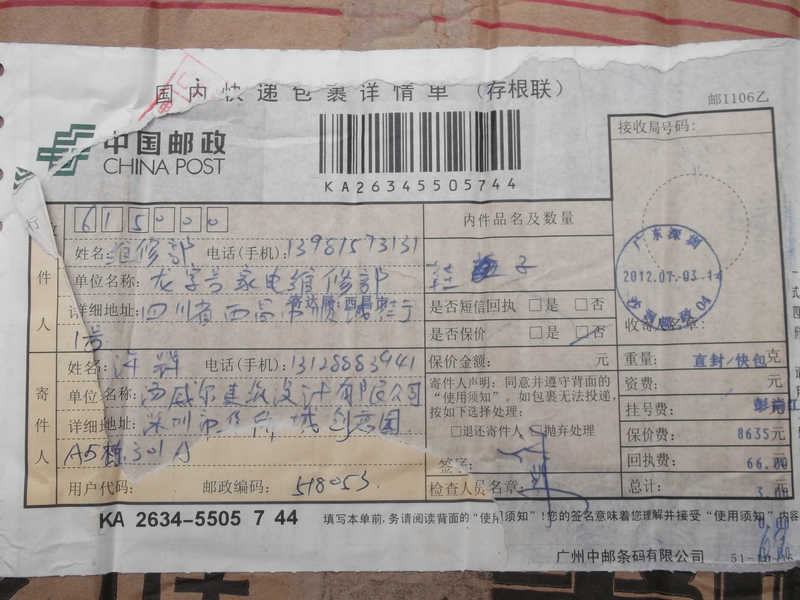 国内快递包裹详情单 (存根联)
邮1106乙
中国邮政
CHINA POST
KA26345505744
接收局号码：
615000
内件品名及数量
姓名：维修部 电话(手机)：13981573131
鞋 子
广东深圳
2012.07.03.14
04
单位名称：龙字号家电维修部
件
人
是否短信回执 □是 □否
详细地址：四川省西昌市
1号
是否保价 □是 □否
收寄人员名章：
姓名：许 电话(手机)：13128883941
保价金额： 元
重量：直封/快包 克
寄
件
人
单位名称：西威尔建筑设计有限公司
寄件人声明：同意并遵守背面的
“使用须知”. 如包裹无法投递，
按如下选择处理：
资费： 元
挂号费： 元
详细地址：深圳市 创意园
□退还寄件人 □抛弃处理
保价费： 8635元
A5栋301A
签字：
回执费： 66.00
用户代码： 邮政编码：518053
检查人员名章：
总计： 3.00
KA 2634-5505 7 44
填写本单前,务请阅读背面的“使用须知”!您的签名意味着您理解并接受“使用须知”内容
广州中邮条码有限公司